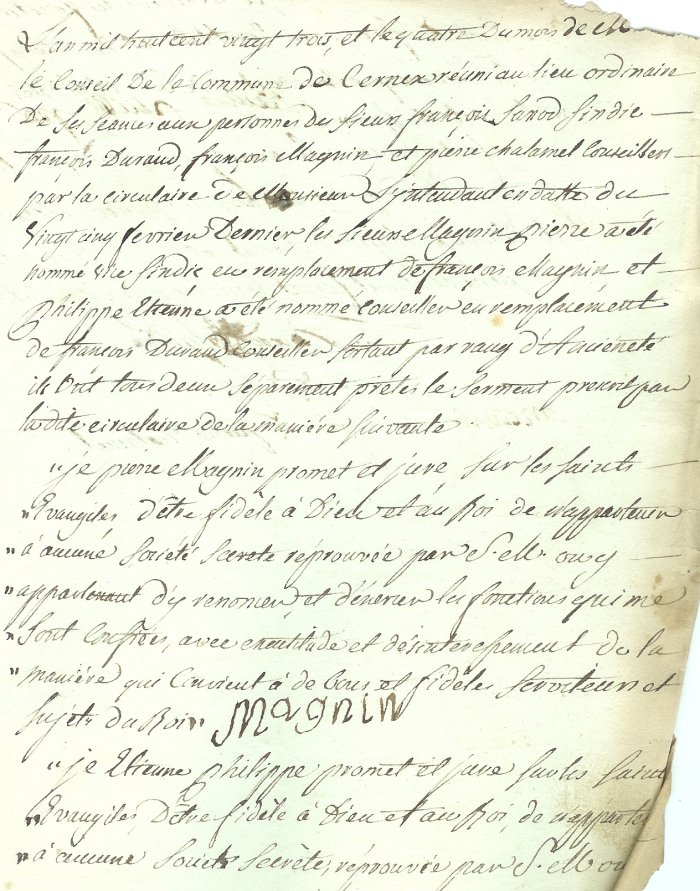 L'an mil huit cent vingt trois, et le quatre Du mois de M
le Conseil De la Commune de Cernex réuni au lieu ordinaire
De ses séances aux personnes des sieurs françois Sarod Sindic
françois Duraud, françois Magnin, et pierre chalamel Conseillers
par la circulaire de Monsieur L'jntendant en datte du
Vingt cinq fevrier Dernier les sieurs Magnin pierre a été
nommé vice sindic en remplacement de françois Magnin et
philippe Etienne a été nommé Conseiller en remplacement
de françois Duraud Conseiller sortant par rang d'Ancieneté
ils ont tous deux séparement prêtés le serment prescrit par
la dite circulaire de la maniére suivante
"je pierre Magnin promet et jure, sur les saints
"Evangiles d'être fidèle à Dieu et au Roi de n'appartenir
"à aucune société secrete réprouvée par S. M. ou y
"appartenant d'y renoncer, et d'éxercer les fonctions qui me
"sont confiées, avec exactitude et désinteressement de la
"maniére qui Convient à de bons et fidéles serviteurs et
sujets du Roi" Magnin
"je Etienne philippe promet et jure sur les saints
"Evangiles, D'être fidèle à Dieu et au Roi, de n'apparte
"à aucune Societé secrète, réprouvée par S. M. ou